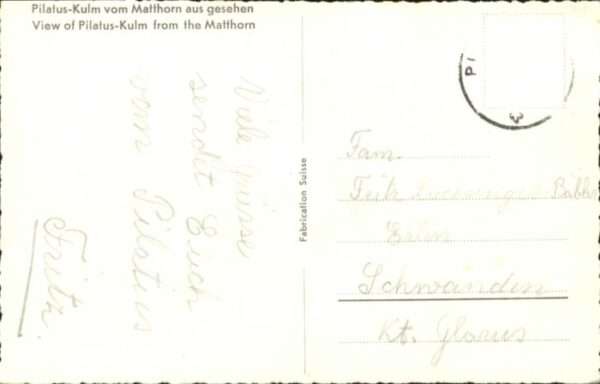 Pilatus-Kulm vom Matthorn aus gesehen
View of Pilatus-Kulm from the Matthorn
Viele Grüsse
sendet Euch
vom Pilatus
Fritz.
Fabrication Suisse
PI
Fam.
Fritz
Schwanden
Kt. Glarus